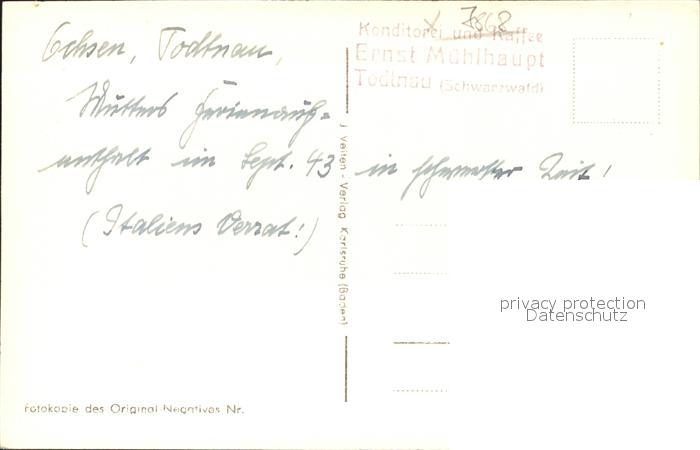 Ochsen, Todtnau,
Mutters Ferienauf-
enthalt im Sept. 43 in schwerster Zeit!
(Italiens Verrat!)
7868
Konditorei und Kaffee
Ernst Mühlhaupt
Todtnau (Schwarzwald)
J. Velten - Verlag Karlsruhe (Baden)
privacy protection
Datenschutz
Fotokopie des Original-Negatives Nr.